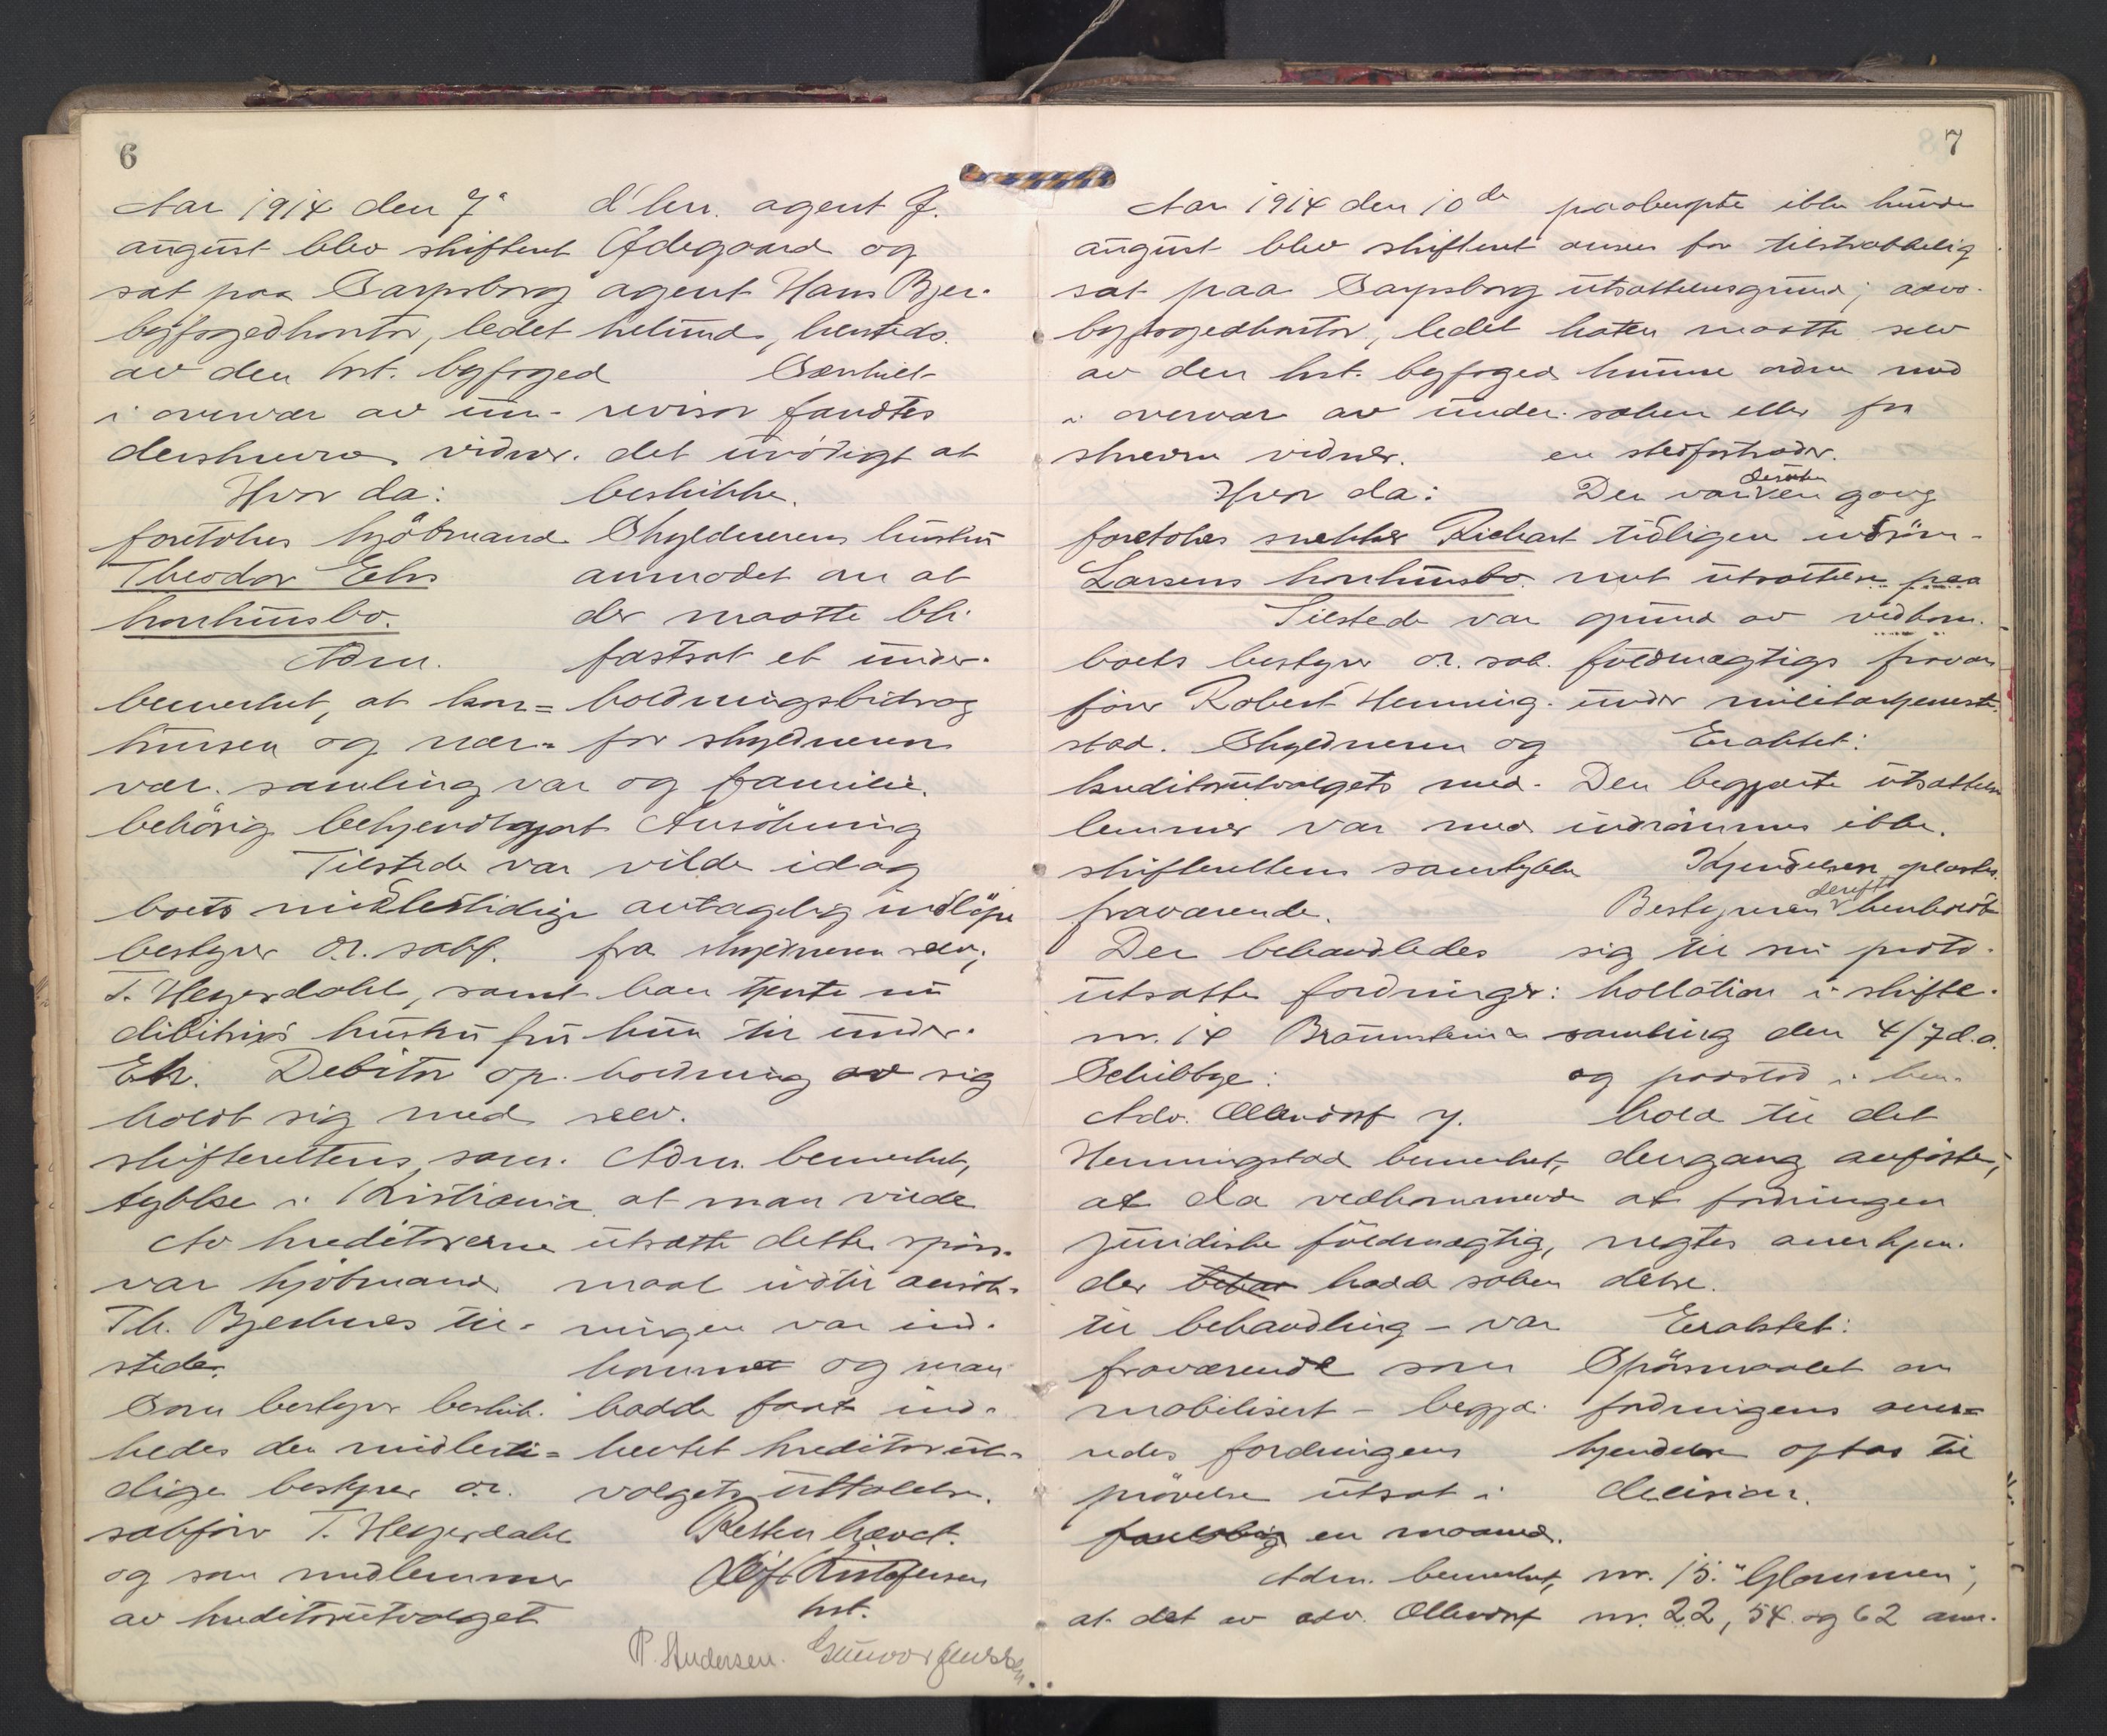 6
Aar 1914 den 7'
august blev skifteret
sat paa Sarpsborg
byfogedkontor, ledet
av den kst. byfoged
i overvær av un-
derskrevne vidner.
Hvor da:
foretokes kjöbmand
Theodor Ehs
konkursbo.
Adm.
bemerket, at kon=
kursen og nær-
vær. samling var
behörig bekjendtgjort
Tilstede var
boets midlertidige
bestyrer o.r. sakf.
T. Heyerdahl, samt
debitors hustru fru
Eh. Debitor op-
holdt sig med
skifterettens sam-
tykke i Kristiania
Av kreditorerne
var kjöbmand
Th. Bjerknes til-
stede.
Som bestyrer beskik-
kedes den midlerti=
dige bestyrer o.r.
sakförer T. Heyerdahl
og som medlemmer
av kreditorutvalget
d'hrr. agent J.
Ödegaard og
agent Hans Bjer-
kelund, hersteds.
Særskilt
revisor fandtes
det unödigt at
beskikke.
Skyldnerens hustru
anmodet om at
der maatte bli
fastsat et under-
holdningsbidrag
for skyldneren
og familie.
Ansökning
vilde idag
antagelig indlöpe
fra skyldneren selv;
han tjente nu
kun til under-
holdning av sig
selv.
Adm. bemerket,
at man vilde
utsætte dette spörs-
maal indtil ansök-
ningen var ind-
kommet og man
hadde faat ind-
hentet kreditorut-
valgets uttalelse.
Retten hævet.
kst.
P. Andersen. Gunvor Jenssen.
7
Aar 1914 den 10de
august blev skifteret
sat paa Sarpsborg
byfogedkontor, ledet
av den kst. byfoged
i overvær av under-
skrevne vidner.
Hvor da:
foretokes snekker Richart
Larsens konkursbo.
Tilstede var
boets bestyrer o.r. sak-
förer Robert Henning-
stad. Skyldneren og
kreditorutvalgets med-
lemmer var med
skifterettens samtykke
fraværende.
Der behandledes
utsatte fordringer:
nr. 14 Braunstein &
Schibbye:
Adv. Ellendorf v.
Henningstad bemerket,
at da vedkommende
juridiske fuldmægtig,
der hadde saken
til behandling – var
fraværende som
mobilisert – begjæ-
redes fordringens
prövelse utsat i
foreløbig en maaned.
Adm. bemerket,
at det av adv. Ellendorf
paaberopte ikke kunde
ansees for tilstrækkelig
utsættelsesgrund; advo-
katen maatte selv
kunne ordne med
saken eller faa
en stedfortræder.
Der var desuten en gang
tidligere indröm-
met utsættelse paa
grund av vedkom.
fuldmægtigs fravær
under militærtjeneste.
Eraktet:
Den begjærte utsættelse
indrömmes ikke.
Kjendelsen oplæstes.
Bestyreren derefter henholdt
sig til sin proto-
kollation i skifte-
samling den 4/7 d.a.
og paastod i hen-
hold til det
dengang anförte,
at fordringen
negtes anerkjen-
delse.
Eraktet:
Spörsmaalet om
fordringens aner=
kjendelse optas til
decision.
nr. 15. "Glommen",
nr. 22, 54 og 62 anm.